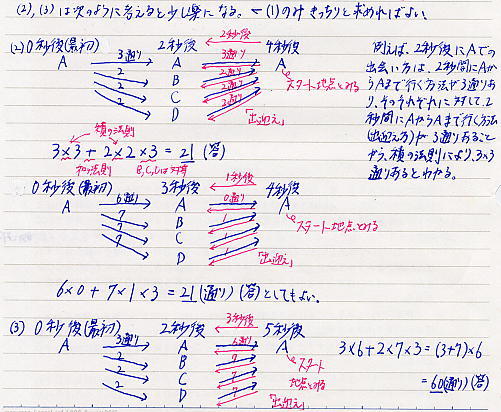 (2),(3)は次のように考えると少し楽になる。←(1)のみきっちりと求めればよい。
(2) 0秒後(最初) 2秒後 2秒後 4秒後
A 3通り A 3通り A
2 B 2通り スタート地点とみる
2 C 2通り
2 D 2通り 「出迎え」
例えば、2秒後にAでの
出会い方は、2秒間にAか
らAまで行く方法が3通りあ
り、そのそれぞれに対して、2
秒間にAからAまで行く方法
(出迎え方)が3通りあること
から、積の法則により、3×3
通りあるとわかる。
積の法則
3×3+2×2×3=21 (答)
和の法則 B,C,Dは対等
0秒後(最初) 3秒後 1秒後 4秒後
A 6通り A 0通り A
7 B 1 スタート地点とみる
7 C 1
7 D 1 「出迎え」
6×0+7×1×3=21(通り)(答)としてもよい。
(3) 0秒後(最初) 2秒後 3秒後 5秒後
A 3通り A 6通り A
2 B 7 スタート
2 C 7 地点とみる
2 D 7 「出迎え」
3×6+2×7×3=(3+7)×6
=60(通り)(答)